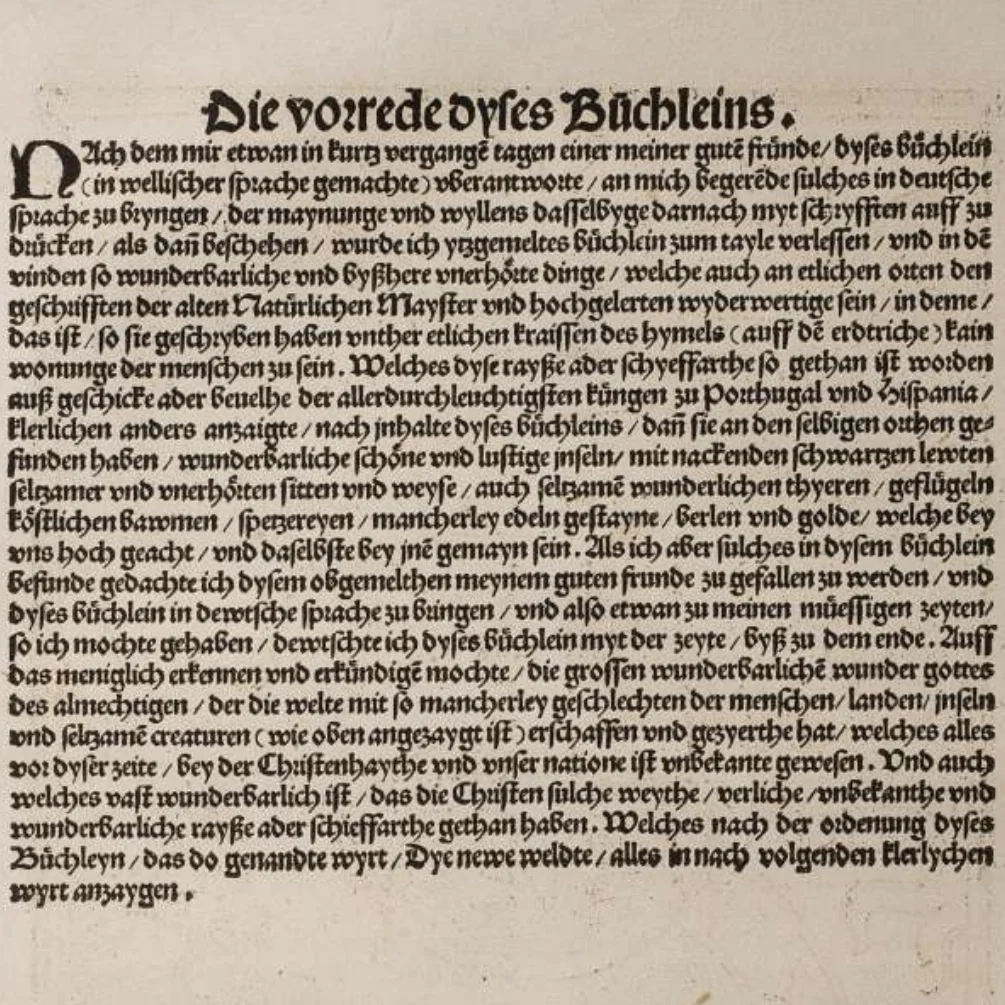 Die vorrede dyses Bůchleins.
NAch dem mir etwan in kurtz vergangẽ tagen einer meiner gutẽ fründe/ dyses bůchlein
(in wellischer sprache gemachte) vberantworte / an mich begerẽde sulches in deutsche
sprache zu bryngen / der maynunge vnd wyllens dasselbyge darnach myt schryfften auff zu
drücken / als dañ beschehen / wurde ich ytzgemeltes bůchlein zum tayle verlessen / vnd in dẽ
vinden so wunderbarliche vnd byßhere vnerhörte dinge / welche auch an etlichen orten den
geschrifften der alten Natürlichen Mayster vnd hochgelerten wyderwertige sein / in deme /
das ist / so sie geschryben haben vnther etlichen kraissen des hymels (auff dẽ erdtriche) kain
wonunge der menschen zu sein. Welches dyse rayße ader schyeffarthe so gethan ist worden
auß geschicke ader beuelhe der allerdurchleuchtigsten küngen zu Porthugal vnd Hispania /
klerlichen anders anzaigte / nach jnhalte dyses bůchleins / dañ sie an den selbigen orthen ge⸗
funden haben / wunderbarliche schöne vnd lustige jnseln/ mit nackenden schwartzen lewten
seltzamer vnd vnerhörten sitten vnd weyse / auch seltzamẽ wunderlichen thyeren / geflügeln
köstlichen bawmen / spetzereyen / mancherley edeln gestayne / berlen vnd golde/ welche bey
vns hoch geacht / vnd daselbste bey jnẽ gemayn sein. Als ich aber sulches in dysem bůchlein
befunde gedachte ich dysem obgemelthen meynem guten frunde zu gefallen zu werden / vnd
dyses bůchlein in dewtsche sprache zu bringen / vnd also etwan zu meinen müessigen zeyten/
so ich mochte gehaben / dewtschte ich dyses bůchlein myt der zeyte / byß zu dem ende. Auff
das meniglich erkennen vnd erkündigẽ mochte / die grossen wunderbarlichẽ wunder gottes
des almechtigen / der die welte mit so mancherley geschlechten der menschen/ landen/ jnseln
vnd seltzamẽ creaturen (wie oben angezaygt ist) erschaffen vnd gezyerthe hat/ welches alles
vor dyser zeite / bey der Christenhaythe vnd vnser natione ist vnbekante gewesen. Vnd auch
welches vast wunderbarlich ist / das die Christen sülche weythe / verliche /vnbekanthe vnd
wunderbarliche rayße ader schieffarthe gethan haben. Welches nach der ordenung dyses
Bůchleyn / das do genandte wyrt / Dye newe weldte / alles in nach volgenden klerlychen
wyrt anzaygen.